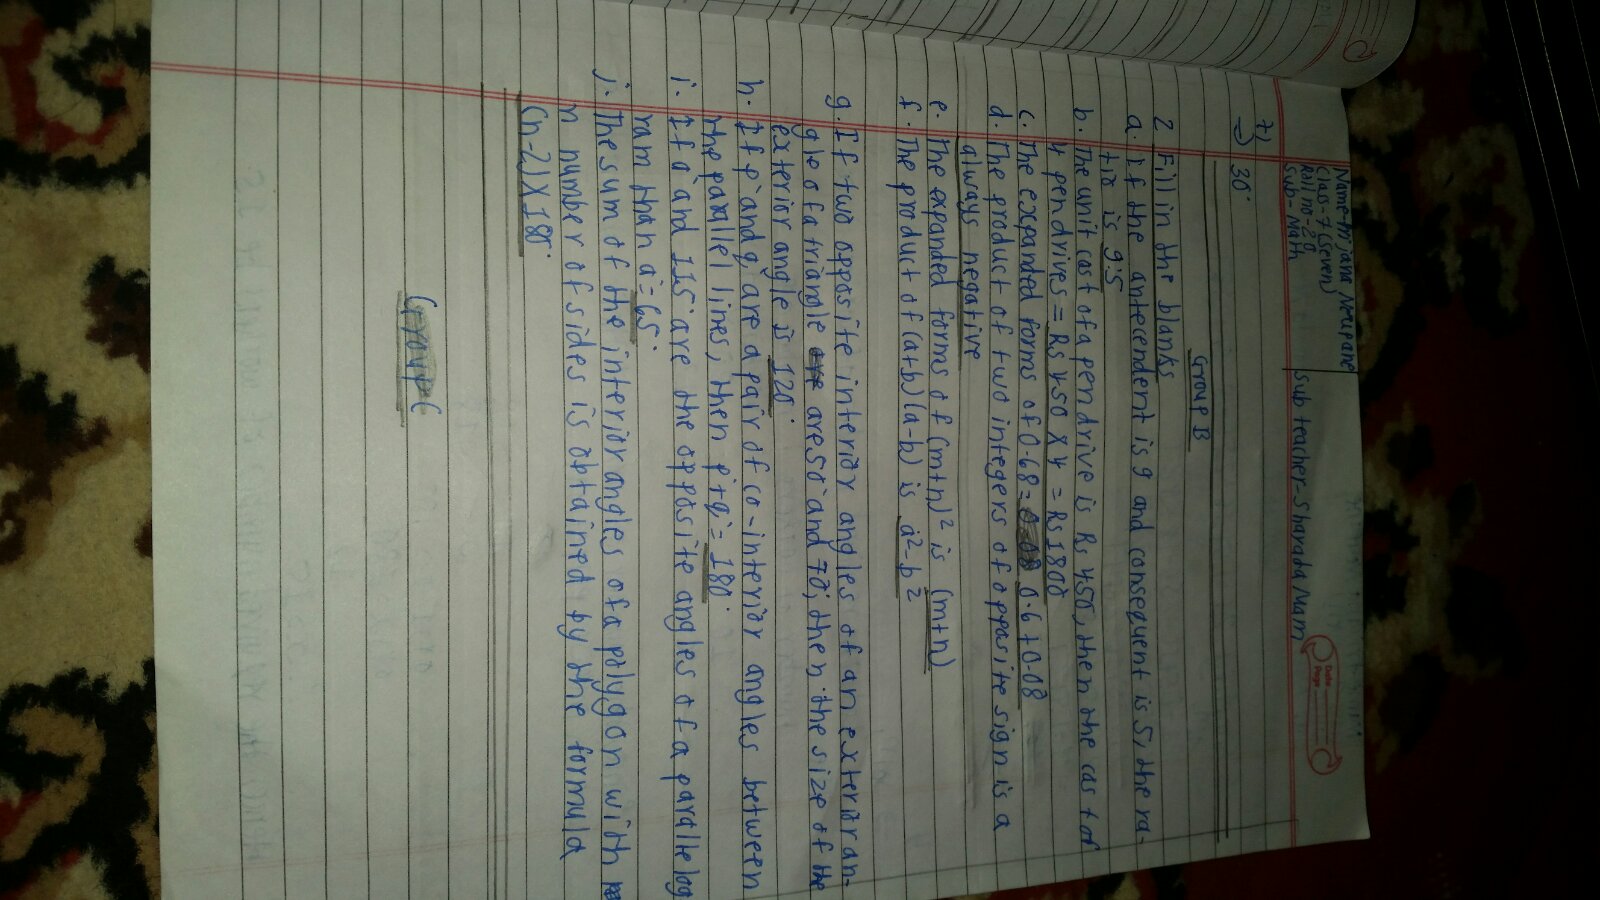 Name-Prijana Neupane
Class-7(Seven)
Roll no-20
Sub-Math
Sub teacher-Sharada Mam
Date
Page
7)
→ 30°
Group B
2 Fill in the blanks
a. If the antecendent is 9 and consequent is 5, the ra-
tio is 9:5
b. The unit cost of a pendrive is Rs 450, then the cost of
4 pendrives = Rs 450 X 4 = Rs 1800
c. The expanded forms of 0.68 = 0.6+0.08
d. The product of two integers of opposite sign is a
always negative
e. The expanded forms of (m+n)² is (m+n)
f. The product of (a+b) (a-b) is a²-b²
g. If two opposite interior angles of an exterior an-
gle of a triangle are 50° and 70°, then the size of the
exterior angle is 120°
h. If p° and q° are a pair of co-interior angles between
the parallel lines, then p°+q° = 180°
i. If a° and 115° are the opposite angles of a parallelog
ram than a° = 65°
j. The sum of the interior angles of a polygon with
n number of sides is obtained by the formula
(n-2) X 180°
Group C